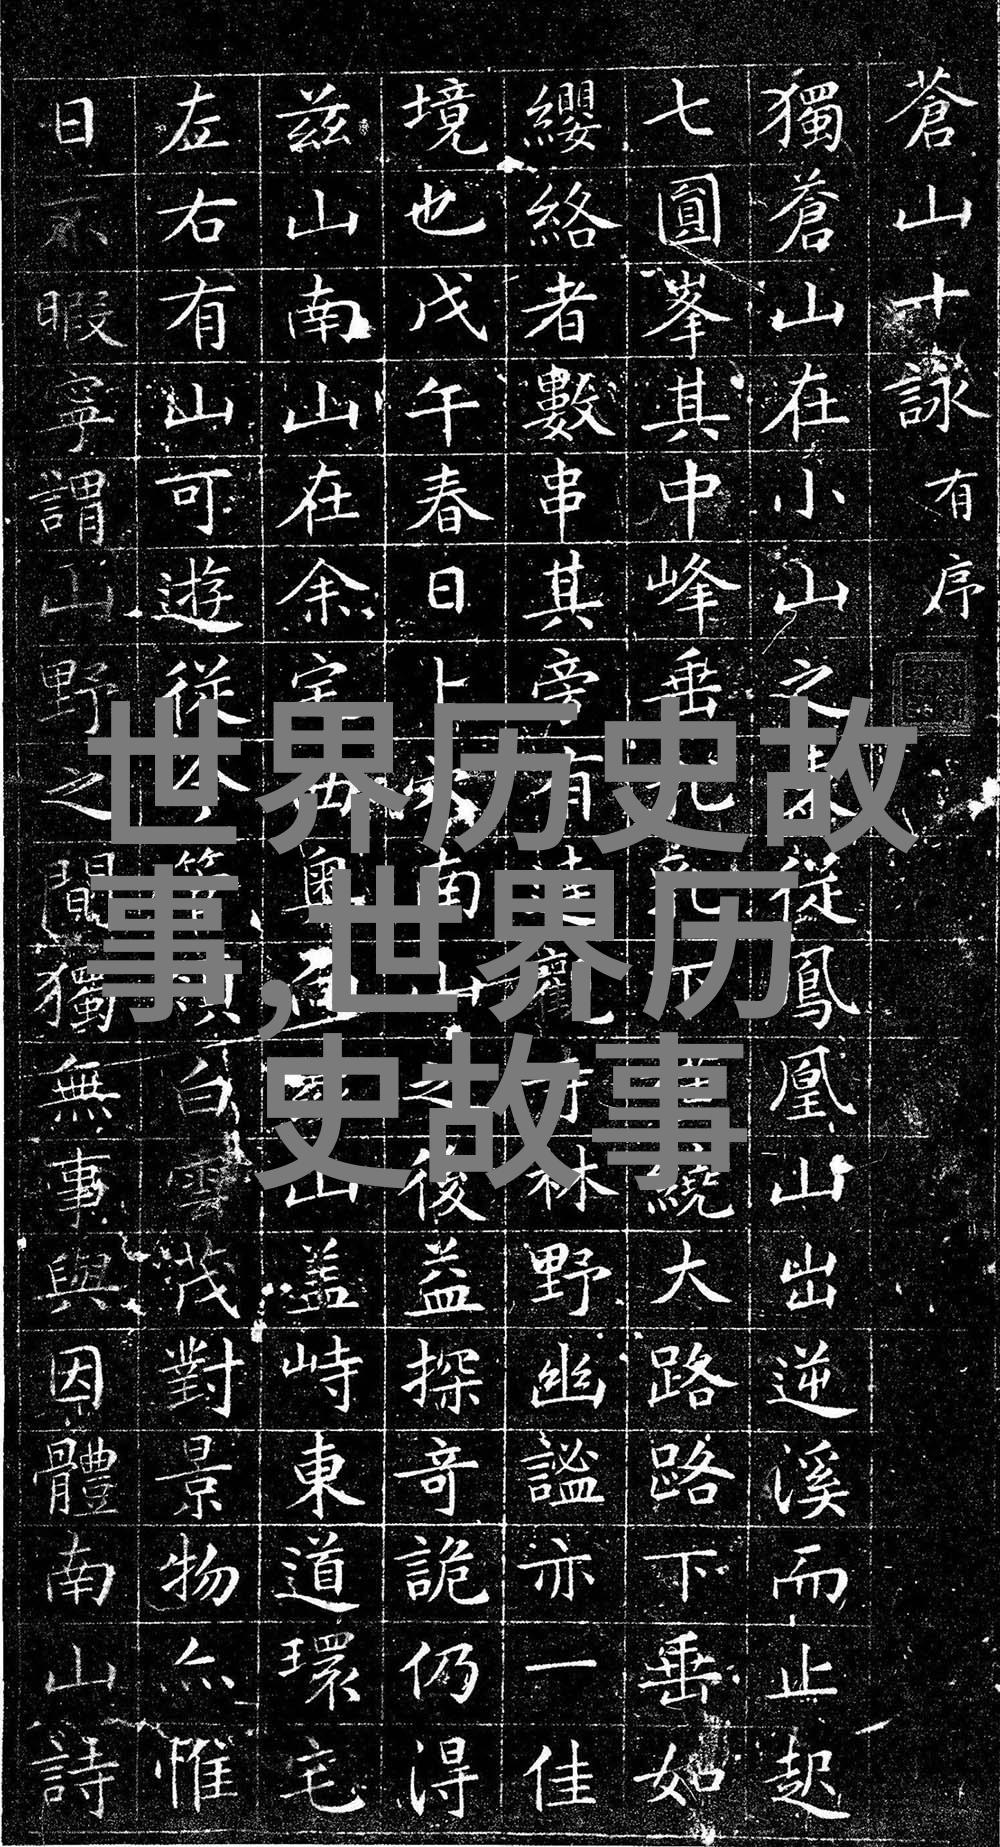 蒼山十詠 有序
獨蒼山在小山之東從鳳凰山出逆溪而止起
七圓峯其中峰垂九乳下繞大路路下垂如
纓絡者數串其旁有寺林野幽謐亦一佳
境也戊午春日上南山之後益探奇詭仍得
茲山南山在余宅奧山盖峙東道環宅
左右有山可遊從今白雲茂對景物亦惟
日不暇寧謂山野之間獨無事與因體南山詩
世界历史故
事,世界历
史故事